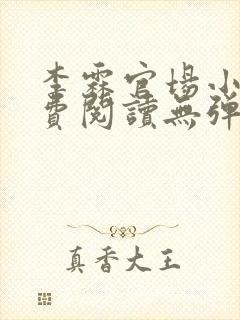 李霖官場小
費閱讀無彈
真香大王